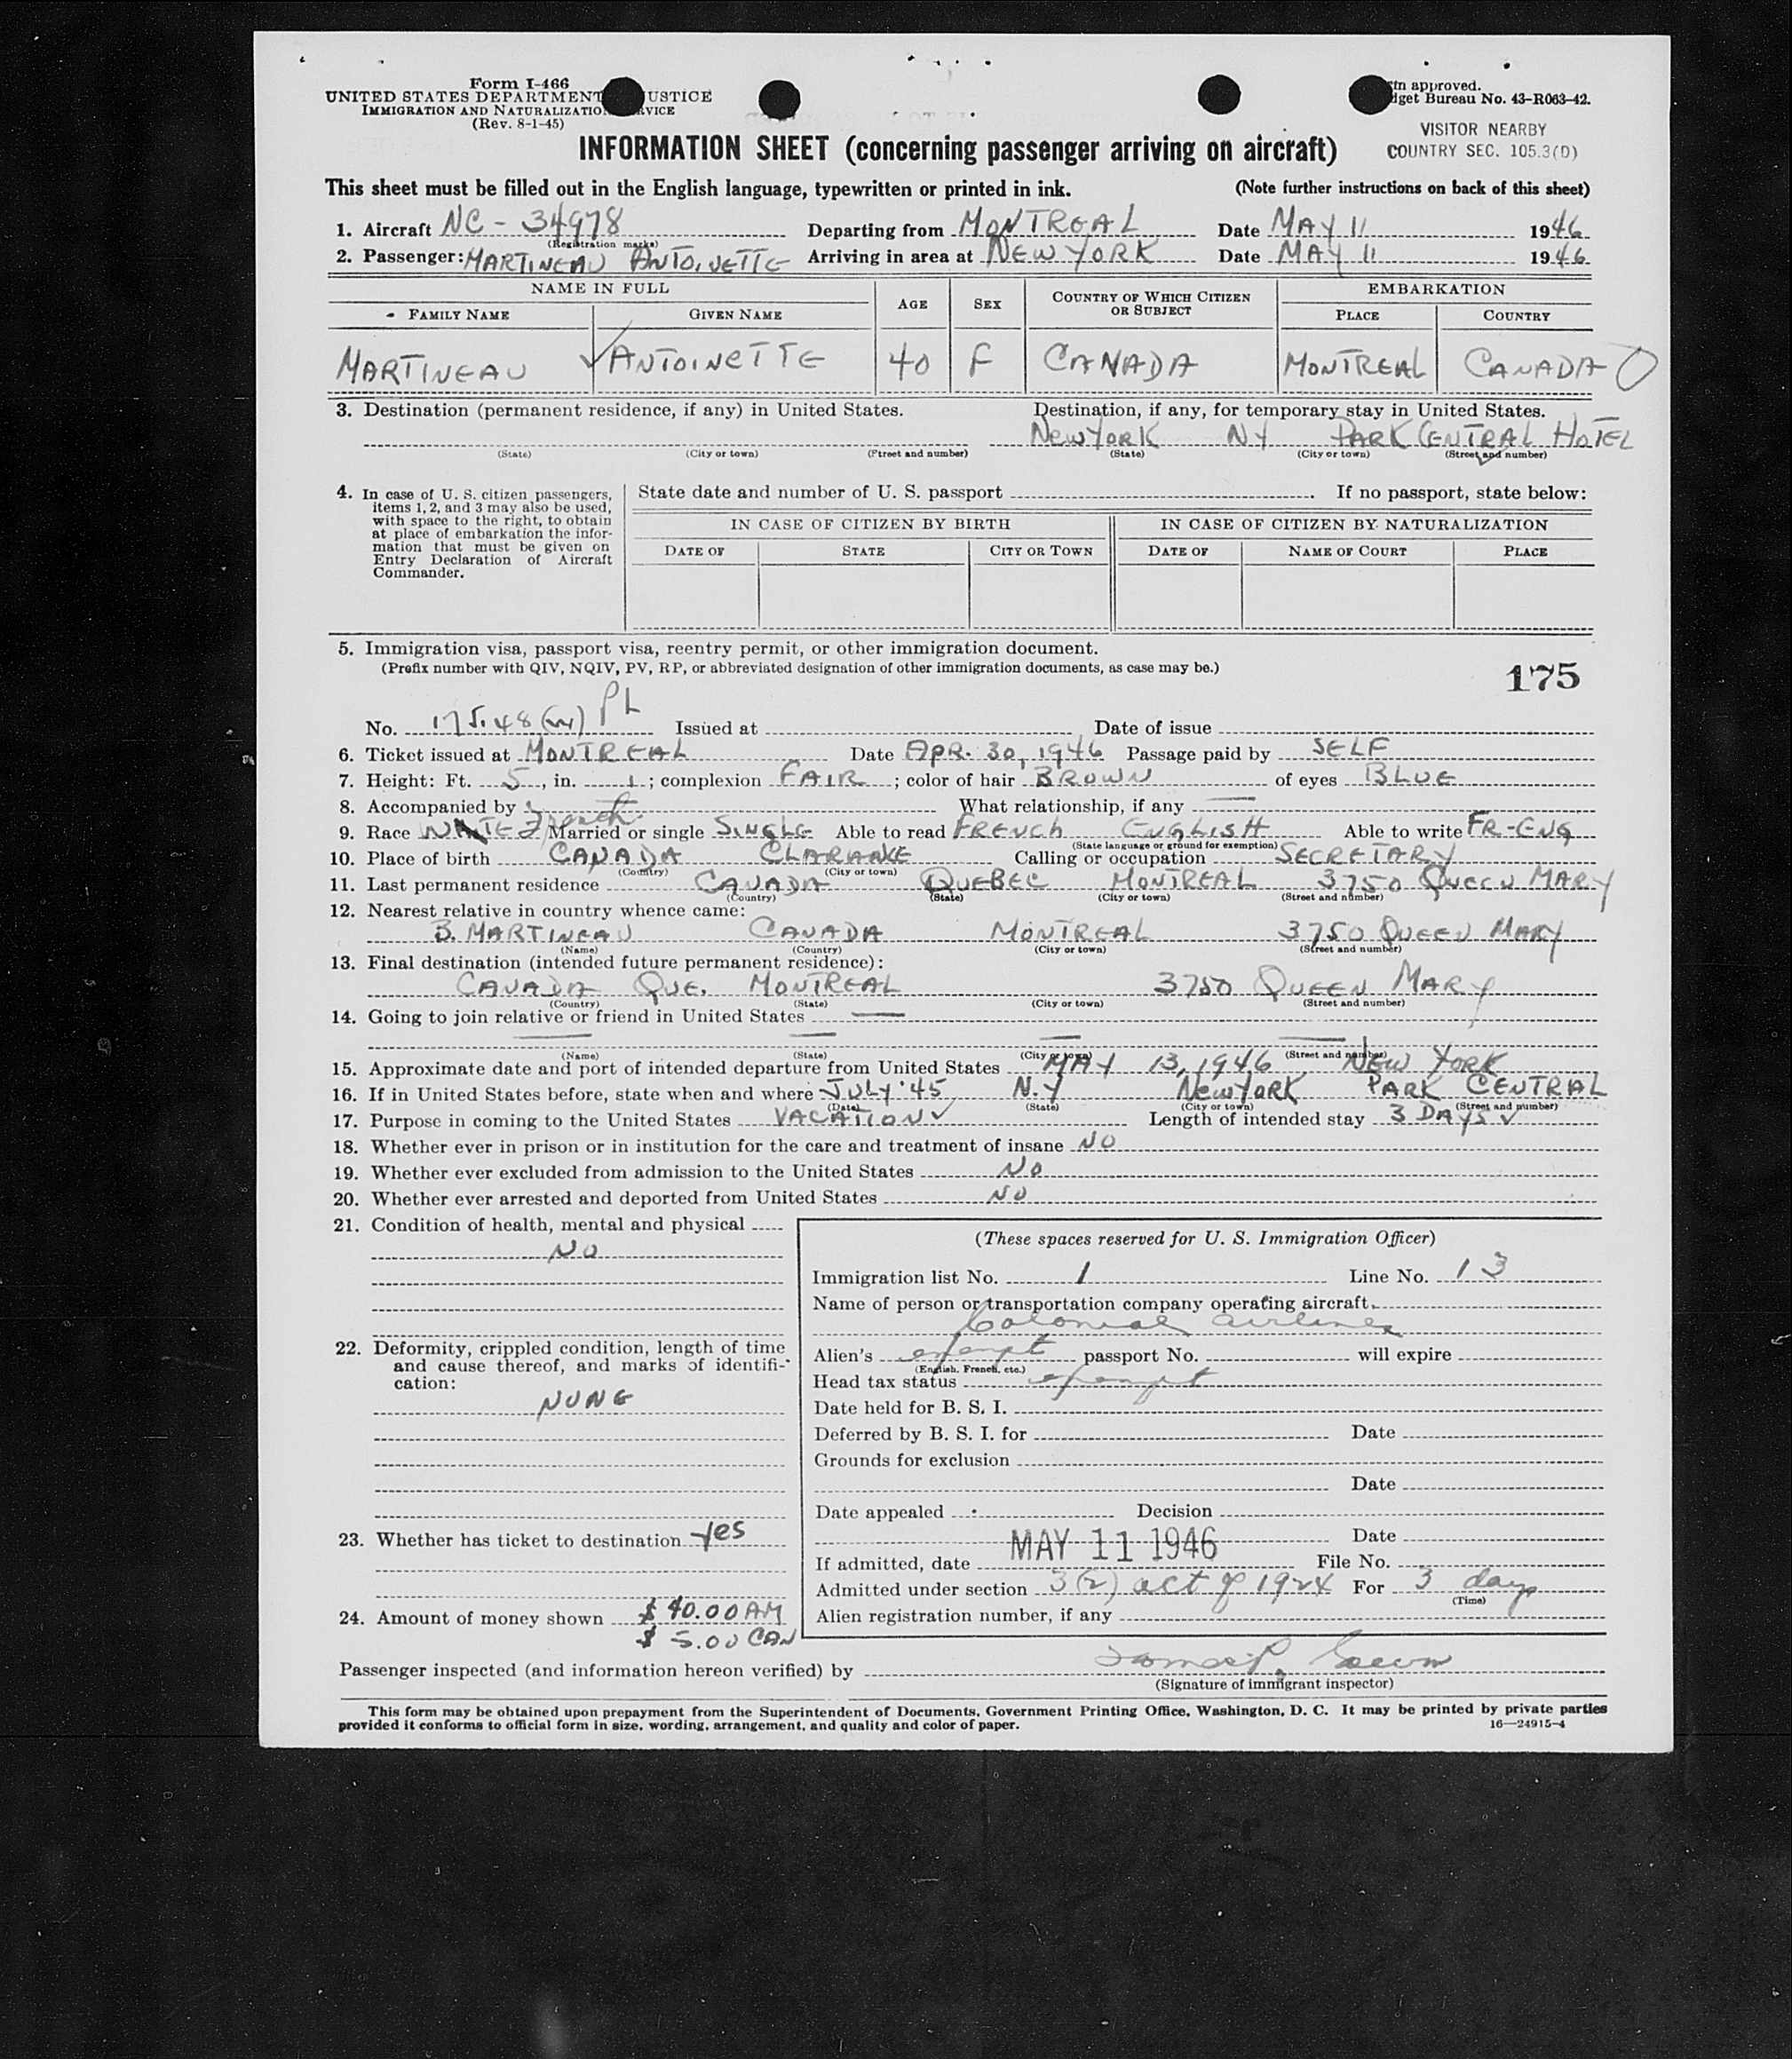 Form I-466
UNITED STATES DEPARTMENT USTICE
IMMIGRATION AND NATURALIZATIO RVICE
(Rev. 8-1-45)
tn approved.
dget Bureau No. 43-R063-42.
VISITOR NEARBY
COUNTRY SEC. 105.3(D)
INFORMATION SHEET (concerning passenger arriving on aircraft)
This sheet must be filled out in the English language, typewritten or printed in ink. (Note further instructions on back of this sheet)
1. Aircraft NC - 34978 Departing from MONTREAL Date MAY 11 1946
(Registration marks)
2. Passenger: MARTINEAU ANTOINETTE Arriving in area at NEW YORK Date MAY 11 1946
NAME IN FULL AGE SEX COUNTRY OF WHICH CITIZEN OR SUBJECT EMBARKATION
FAMILY NAME GIVEN NAME PLACE COUNTRY
MARTINEAU ANTOINETTE 40 F CANADA MONTREAL CANADA
3. Destination (permanent residence, if any) in United States. Destination, if any, for temporary stay in United States.
NEW YORK NY PARK CENTRAL HOTEL
(State) (City or town) (Street and number) (State) (City or town) (Street and number)
4. In case of U. S. citizen passengers, items 1, 2, and 3 may also be used, with space to the right, to obtain at place of embarkation the information that must be given on Entry Declaration of Aircraft Commander.
State date and number of U. S. passport . If no passport, state below:
IN CASE OF CITIZEN BY BIRTH IN CASE OF CITIZEN BY NATURALIZATION
DATE OF STATE CITY OR TOWN DATE OF NAME OF COURT PLACE
5. Immigration visa, passport visa, reentry permit, or other immigration document.
(Prefix number with QIV, NQIV, PV, RP, or abbreviated designation of other immigration documents, as case may be.)
175
No. 175.48 PL Issued at Date of issue
6. Ticket issued at MONTREAL Date APR. 30, 1946 Passage paid by SELF
7. Height: Ft. 5, in. 1; complexion FAIR; color of hair BROWN of eyes BLUE
8. Accompanied by What relationship, if any
9. Race French Married or single SINGLE Able to read FRENCH ENGLISH Able to write FR-ENG
(State language or ground for exemption)
10. Place of birth CANADA Calling or occupation SECRETARY
(Country) (City or town)
11. Last permanent residence CANADA QUEBEC MONTREAL 3750 QUEEN MARY
(Country) (State) (City or town) (Street and number)
12. Nearest relative in country whence came:
B. MARTINEAU CANADA MONTREAL 3750 QUEEN MARY
(Name) (Country) (City or town) (Street and number)
13. Final destination (intended future permanent residence):
CANADA QUE. MONTREAL 3750 QUEEN MARY
(Country) (State) (City or town) (Street and number)
14. Going to join relative or friend in United States
(Name) (State) (City or town) (Street and number)
15. Approximate date and port of intended departure from United States MAY 13, 1946 NEW YORK
16. If in United States before, state when and where JULY '45 N.Y NEW YORK PARK CENTRAL
(Date) (State) (City or town) (Street and number)
17. Purpose in coming to the United States VACATION Length of intended stay 3 DAYS
18. Whether ever in prison or in institution for the care and treatment of insane NO
19. Whether ever excluded from admission to the United States NO
20. Whether ever arrested and deported from United States NO
21. Condition of health, mental and physical
NO
22. Deformity, crippled condition, length of time and cause thereof, and marks of identification:
NONE
23. Whether has ticket to destination yes
24. Amount of money shown $ 40.00 AM
$ 5.00 CAN
(These spaces reserved for U. S. Immigration Officer)
Immigration list No. 1 Line No. 13
Name of person or transportation company operating aircraft.
Colonial Airlines
Alien's exempt passport No. will expire
(English, French, etc.)
Head tax status exempt
Date held for B. S. I.
Deferred by B. S. I. for Date
Grounds for exclusion
Date
Date appealed Decision
Date
If admitted, date MAY 11 1946 File No.
Admitted under section 3(2) act of 1924 For 3 days
(Time)
Alien registration number, if any
Passenger inspected (and information hereon verified) by
(Signature of immigrant inspector)
This form may be obtained upon prepayment from the Superintendent of Documents, Government Printing Office, Washington, D. C. It may be printed by private parties
provided it conforms to official form in size, wording, arrangement, and quality and color of paper. 16—24915-4